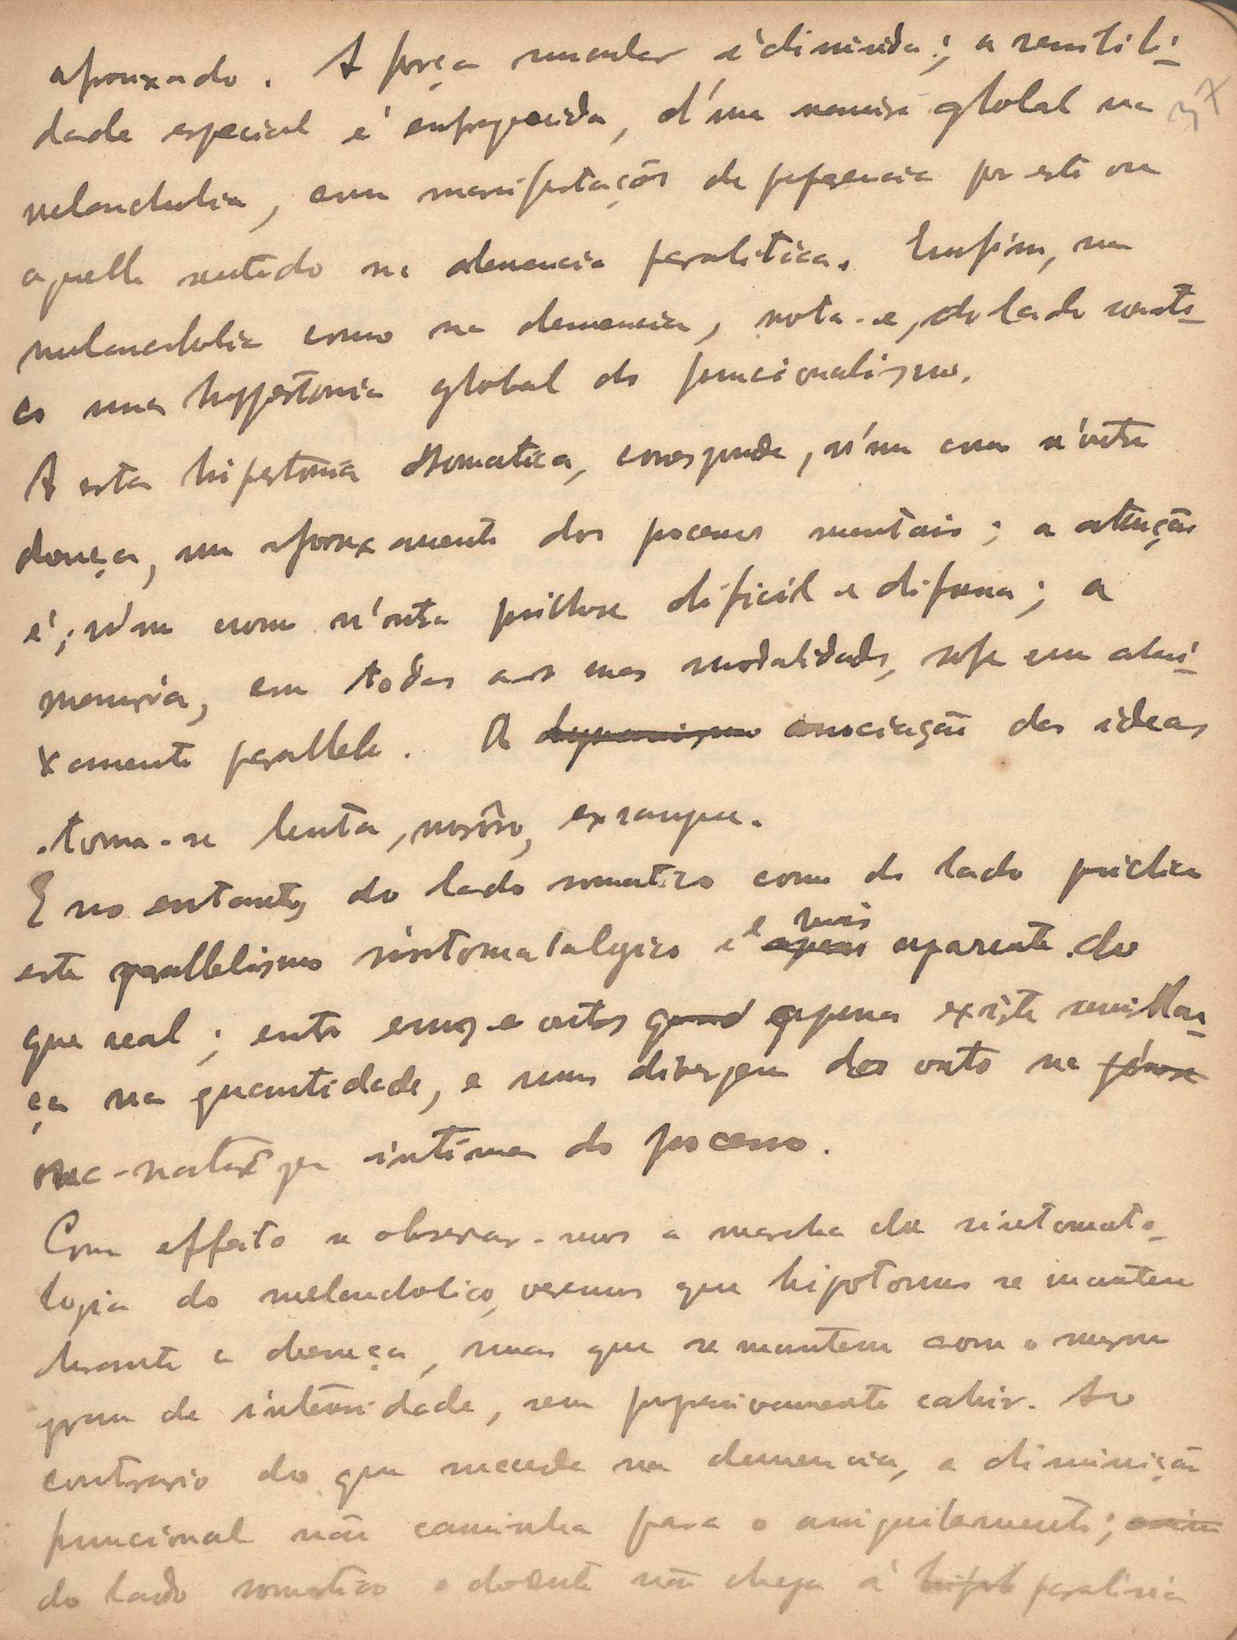 afrouxado. A força muscular é diminuida; a sensibili-
dade especial é enfraquecida, d'uma maneira global na
melancholia, com manifestações de preferencia por este ou
aquelle sentido na demencia paralitica. Emfim, na
melancholia como na demencia, nota-se, do lado somati-
co uma hypotonia global do funcionalismo.
A esta hipotonia somatica, corresponde, n'uma como n'outra
doença, um afrouxamento dos processos mentais; a attenção
é, n'uma como n'outra doença dificil e difusa; a
memoria, em todas as suas modalidades, sofre um abai-
xamento parallelo. A dynamismo associação das ideas
torna-se lenta, exsangue.
E no entanto, do lado somatico como do lado psichico
este parallelismo sintomatologico é apenas mais aparente do
que real; entre esses e outros apenas existe semelhan-
ça na quantidade, e uns divergem dos outros na forma
natureza intima do processo.
Com effeito se observar-mos a marcha da sintomato-
logia do melancholico, veremos que hipotonus se mantem
durante a doença, mas que se mantem com o mesmo
grau de intensidade, sem progressivamente cahir. Ao
contrario do que succede na demencia, a diminuição
funcional não caminha para o aniquilamento; assim
do lado somatico o doente não chega á paralisia